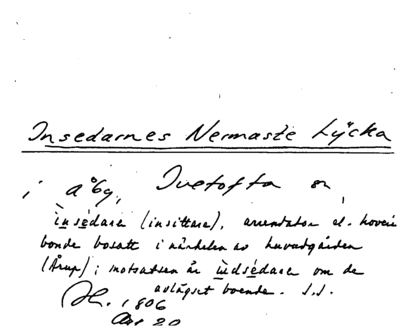 Insedarnes Nermaste Lÿcka
i Åby, Ivetofta sn,
ìnsédare (insittare), arrendator el. hoveri
bonde bosatt i närheten av huvudgården
(Årup); motsatsen är ùdsédare om de
avlägset boende. S.S.
1806
Akt 20